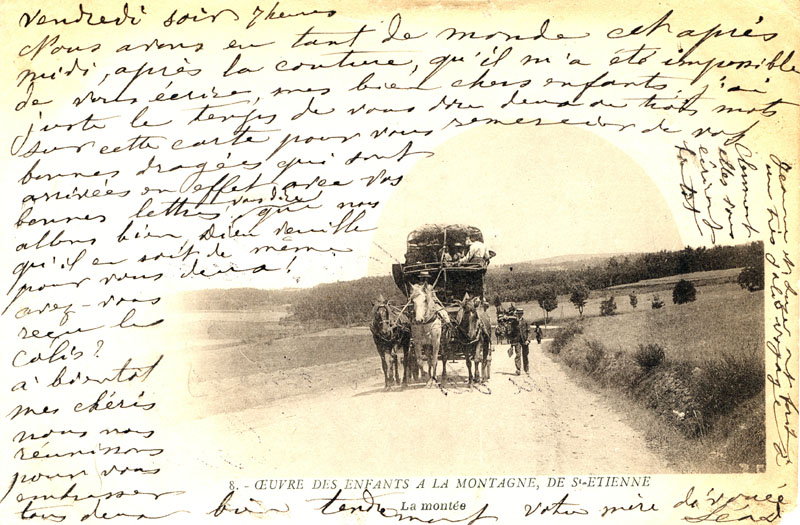 Vendredi soir 7 heures
Nous avons eu tant de monde cet après
midi, après la couture, qu'il m'a été impossible
de vous écrire, mes bien chers enfants, j'ai
juste le temps de vous dire deux ou trois mots
sur cette carte pour vous remercier de vos
bonnes dragées qui sont
arrivées en effet avec vos
bonnes lettres, vous dire que nous
allons bien Dieu veuille
qu'il en soit de même
pour vous deux!
avez-vous
reçu le
colis?
à bientôt
mes chéris
nous nous
réunissons
pour vous
embrasser
tous deux bien tendrement votre mère dévouée
Clermont
elles vous
écriront
tantôt
Jeanne et
un très joli voyage
8. - ŒUVRE DES ENFANTS A LA MONTAGNE, DE St-ETIENNE
La montée